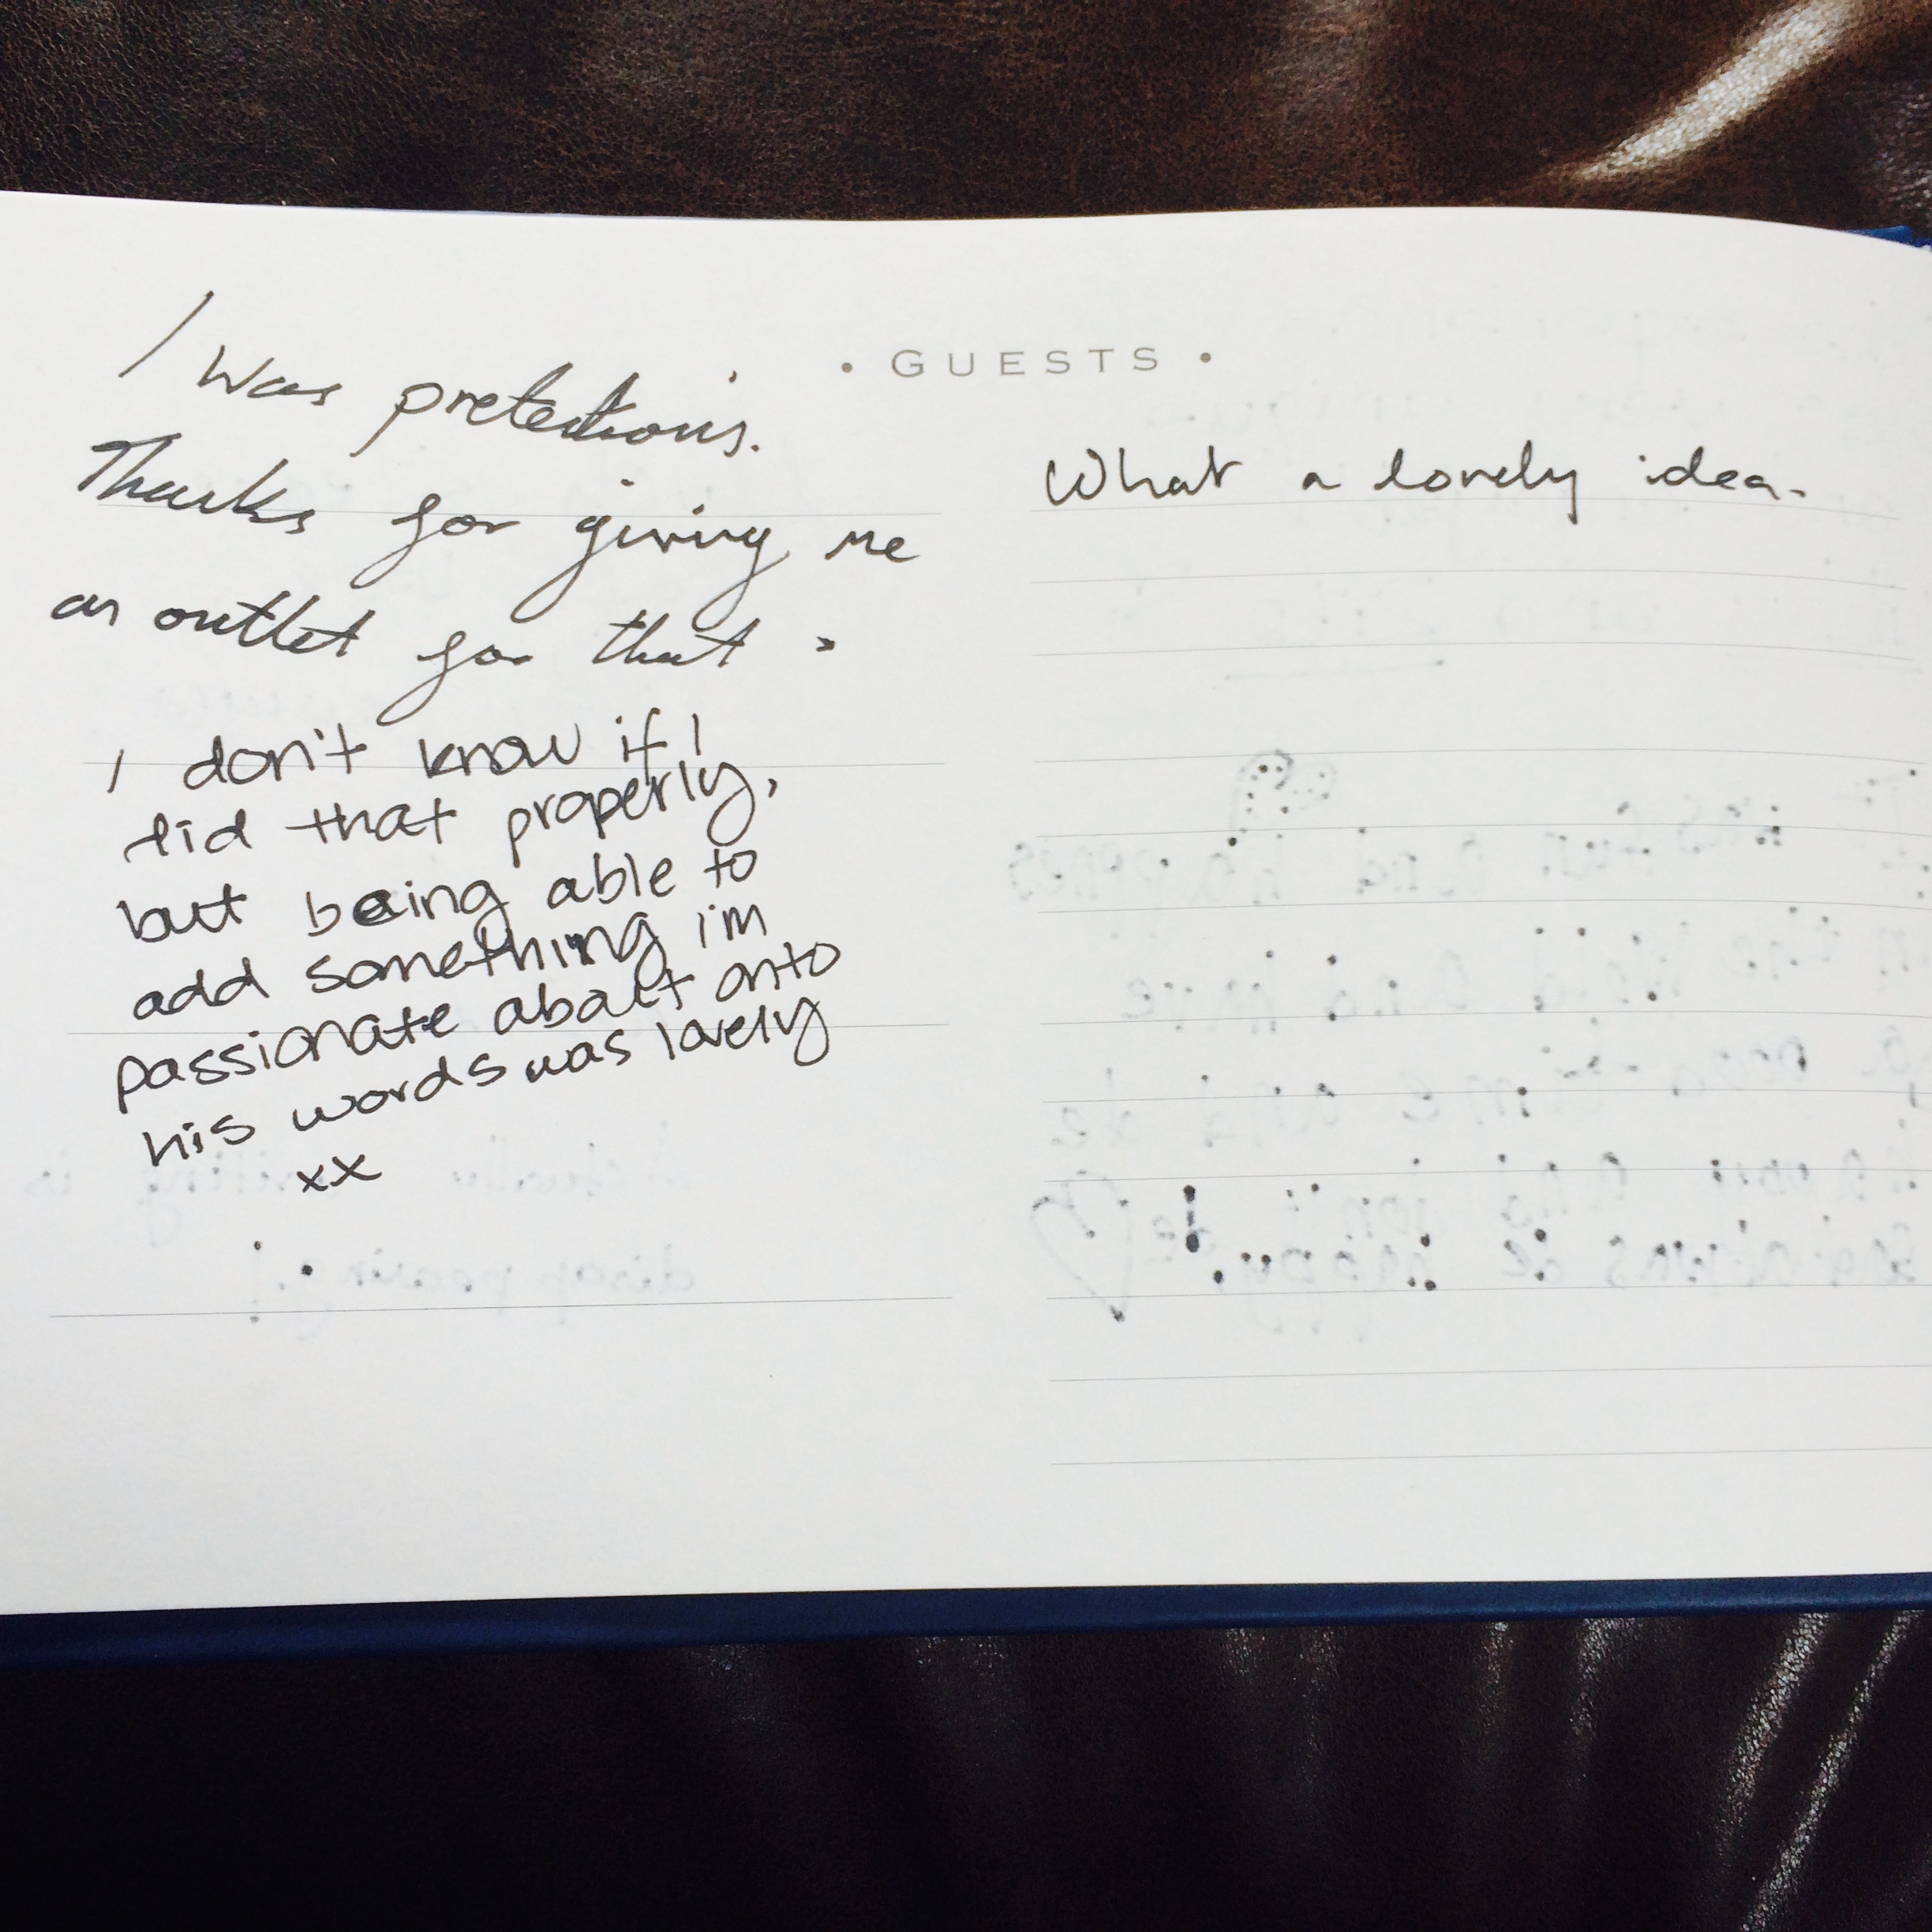 • GUESTS •
I was pretentious.
Thanks for giving me
an outlet for that.
I don't know if I
did that properly,
but being able to
add something i'm
passionate about onto
his words was lovely
xx
What a lovely idea.
Actually writing is
disappearing!